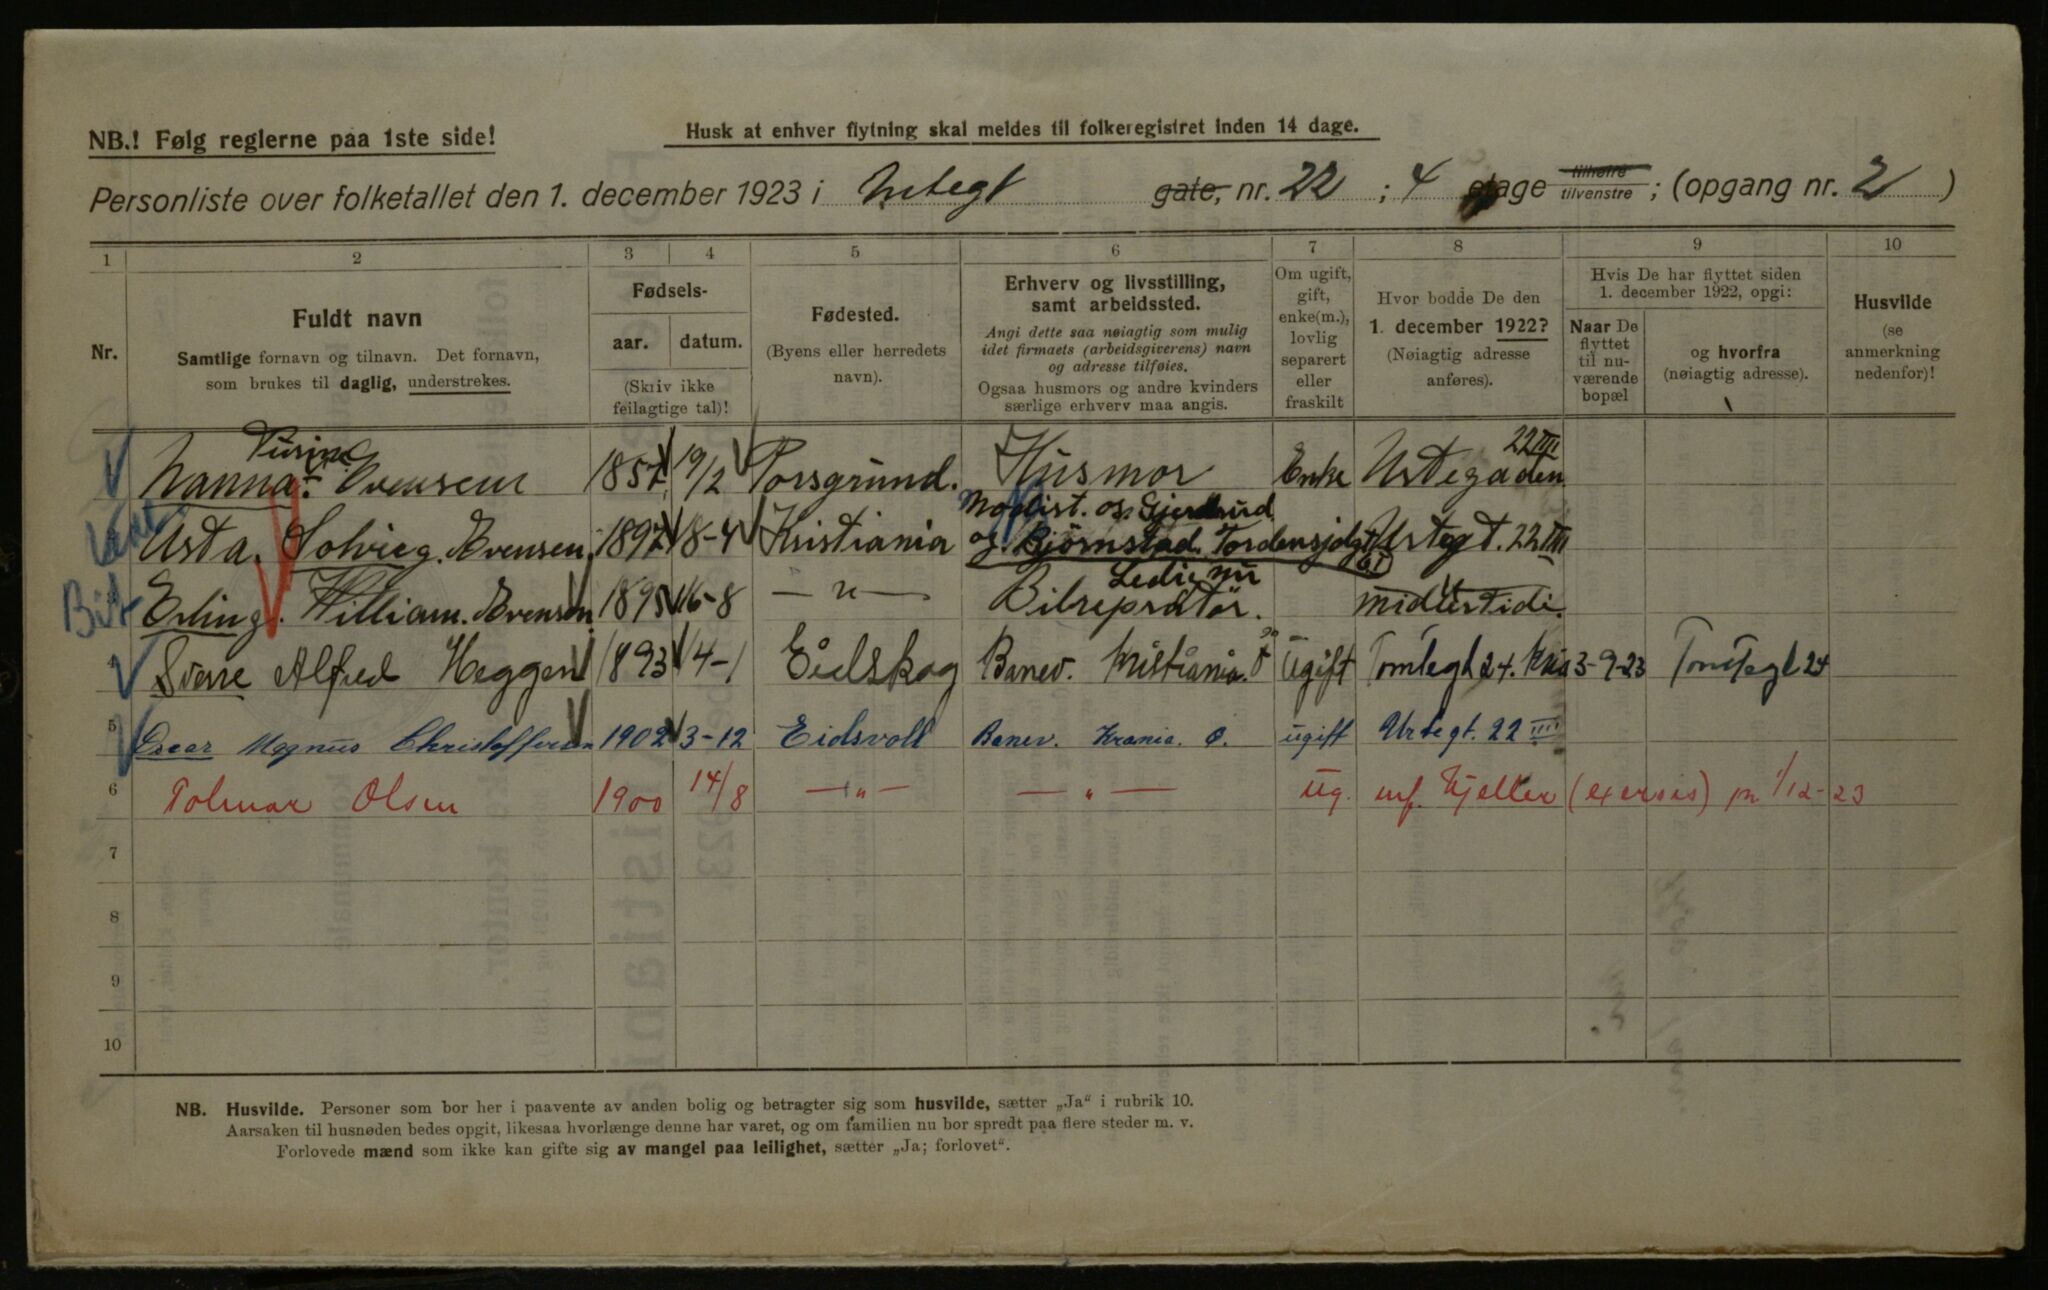 NB.! Følg reglerne paa 1ste side!
Husk at enhver flytning skal meldes til folkeregistret inden 14 dage.
Personliste over folketallet den 1. december 1923 i Urtegt gate, nr. 22 ; 4 etage tilhøire tilvenstre ; (opgang nr. 2 )
1 2 3 4 5 6 7 8 9 10
Nr.
Fuldt navn
Samtlige fornavn og tilnavn. Det fornavn,
som brukes til daglig, understrekes.
Fødsels-
aar. datum.
(Skriv ikke
feilagtige tal)!
Fødested.
(Byens eller herredets
navn).
Erhverv og livsstilling,
samt arbeidssted.
Angi dette saa nøiagtig som mulig
idet firmaets (arbeidsgiverens) navn
og adresse tilføies.
Ogsaa husmors og andre kvinders
særlige erhverv maa angis.
Om ugift,
gift,
enke(m.),
lovlig
separert
eller
fraskilt
Hvor bodde De den
1. december 1922?
(Nøiagtig adresse
anføres).
Hvis De har flyttet siden
1. december 1922, opgi:
Naar De
flyttet
til nu-
værende
bopæl
og hvorfra
(nøiagtig adresse).
Husvilde
(se
anmerkning
nedenfor)!
Nanna Evensen 1857 19/2 Porsgrund. Husmor Enke Urtegaden 22 III
Asta. Solveig. Evensen. 1897 8-4 Kristiania Modist. og. Bjørnstad. Tordensjolgt Urtegt. 22 III
Erling. William. Evensen. 1895 16-8 — " — Bilrepratør. Ledig nu midlertidi.
4 Sverre Alfred Heggen 1893 4-1 Eidskog Banev. Kristiania. Ø Ugift Tomtegt 24. Kria 3-9-23 Tomtegt 24
5 Oscar Magnus Christoffersen 1902 3-12 Eidsvoll Banev. Krania. Ø. ugift Urtegt. 22 III
6 Tolmar Olsen 1900 14/8 — " — — " — ug. Kjeller (exersis) pr. 1/12-23
7
8
9
10
NB. Husvilde. Personer som bor her i paavente av anden bolig og betragter sig som husvilde, sætter „Ja“ i rubrik 10.
Aarsaken til husnøden bedes opgit, likesaa hvorlænge denne har varet, og om familien nu bor spredt paa flere steder m. v.
Forlovede mænd som ikke kan gifte sig av mangel paa leilighet, sætter „Ja; forlovet“.